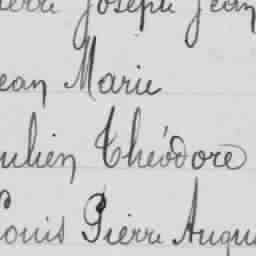 ierre Joseph Jean
ean Marie
ulien Théodore
Louis Pierre Augu